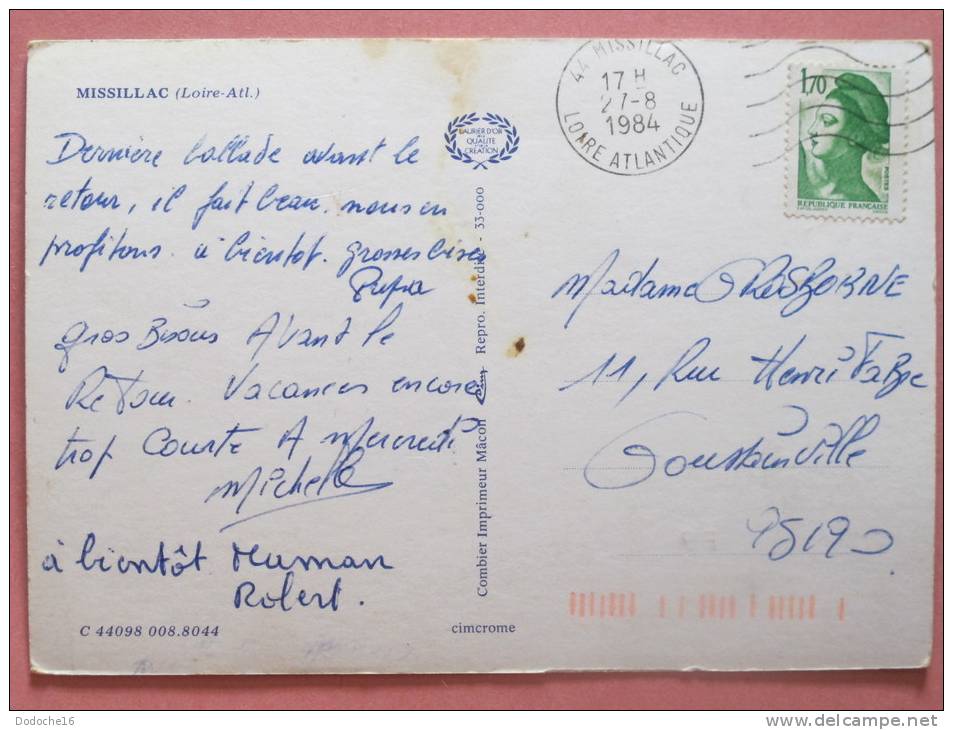 MISSILLAC (Loire-Atl.)
Dernière ballade avant le
retour, il fait beau. nous en
profitons. à bientot. grosses bises
Gros Bisous Avant le
Retour. Vacances encore
trop Courte A Mercredi
Michelle
à bientôt Maman
Robert.
C 44098 008.8044
cimcrome
LAURIER D'OR
DE
QUALITE
CREATION
Combier Imprimeur Mâcon Repro. Interdite - 33-000
44 MISSILLAC
17 H
27-8
1984
LOIRE ATLANTIQUE
1,70
POSTES
REPUBLIQUE FRANÇAISE
Madame
11, Rue Henri Fabre
Goussainville
95190
Dodoche16
delcampe.net